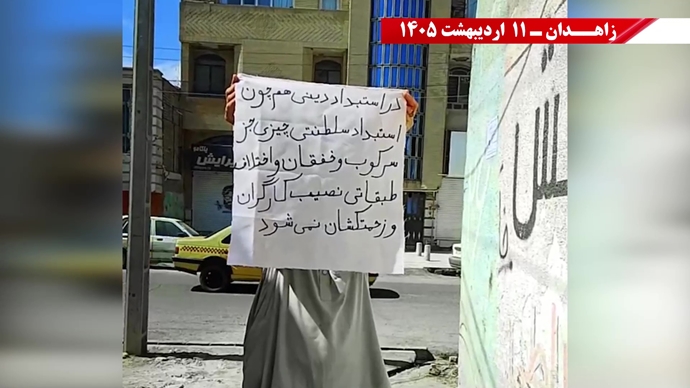 زاهدان ـ ۱۱ اردیبهشت ۱۴۰۵
در استبداد دینی هم چون
استبداد سلطنتی چیزی جز
سرکوب و خفقان و اختلاف
طبقاتی نصیب کارگران
و زحمتکشان نمی شود
پیرایش